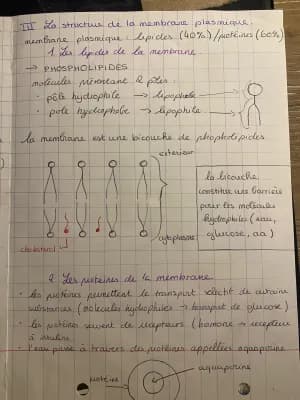 III La structure de la membrane plasmique.
membrane plasmique : lipides (40%) / protéines (60%)
1. Les lipides de la membrane
→ PHOSPHOLIPIDES
molécules présentant 2 pôles :
• pôle hydrophile → lipophobe
• pôle hydrophobe → lipophile
La membrane est une bicouche de phospholipides
extérieur
cytoplasme
cholestérol
La bicouche
constitue une barrière
pour les molécules
hydrophiles (eau,
glucose, aa)
2. Les protéines de la membrane
• Les protéines permettent le transport sélectif de certaines
substances, (molécules hydrophiles → transport de glucose)
• Les protéines servent de récepteurs (hormone → récepteur
à insuline
• l'eau passe à travers des protéines appellées aquaporine
protéine
aquaporine